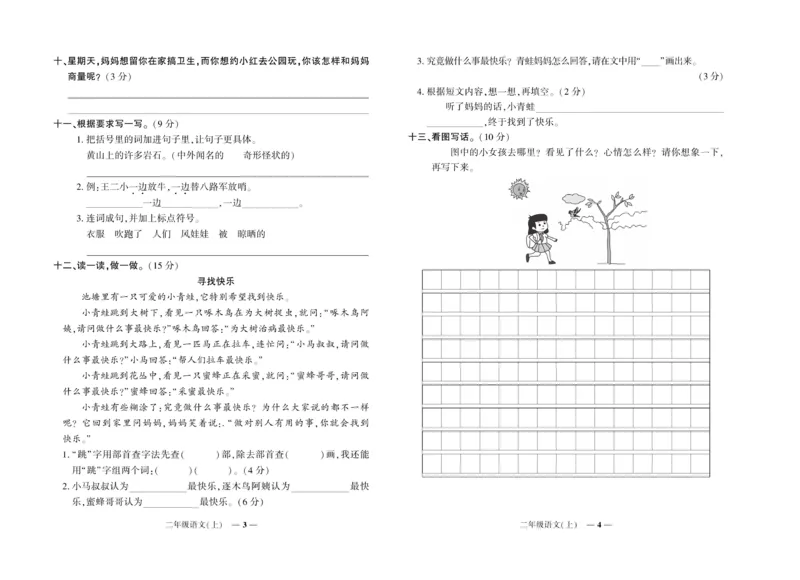 十、星期天,妈妈想留你在家搞卫生,而你想约小红去公园玩,你该怎样和妈妈
商量呢?(3分)
十一、根据要求写一写。(9分)
1. 把括号里的词加进句子里,让句子更具体。
黄山上的许多岩石。(中外闻名的 奇形怪状的)
2. 例:王二小一边放牛,一边替八路军放哨。
____________一边____________,一边____________。
3. 连词成句,并加上标点符号。
衣服 吹跑了 人们 风娃娃 被 晾晒的
十二、读一读,做一做。(15分)
寻找快乐
池塘里有一只可爱的小青蛙,它特别希望找到快乐。
小青蛙跳到大树下,看见一只啄木鸟在为大树捉虫,就问:“啄木鸟阿
姨,请问做什么事最快乐?”啄木鸟回答:“为大树治病最快乐。”
小青蛙跳到大路上,看见一匹马正在拉车,连忙问:“小马叔叔,请问做
什么事最快乐?”小马回答:“帮人们拉车最快乐。”
小青蛙跳到花丛中,看见一只蜜蜂正在采蜜,就问:“蜜蜂哥哥,请问做
什么事最快乐?”蜜蜂回答:“采蜜最快乐。”
小青蛙有些糊涂了:究竟做什么事最快乐?为什么大家说的都不一样
呢?它回到家里问妈妈,妈妈笑着说:“做对别人有用的事,你就会找到
快乐。”
1. “跳”字用部首查字法先查( )部,除去部首查( )画,我还能
用“跳”字组两个词:( )( )。(4分)
2. 小马叔叔认为____________最快乐,逐木鸟阿姨认为____________最快
乐,蜜蜂哥哥认为____________最快乐。(6分)
二年级语文(上) — 3 —
3. 究竟做什么事最快乐?青蛙妈妈怎么回答,请在文中用“____”画出来。
(3分)
4. 根据短文内容,想一想,再填空。(2分)
听了妈妈的话,小青蛙____________
____________,终于找到了快乐。
十三、看图写话。(10分)
图中的小女孩去哪里?看见了什么?心情怎么样?请你想象一下,
再写下来。
二年级语文(上) — 4 —